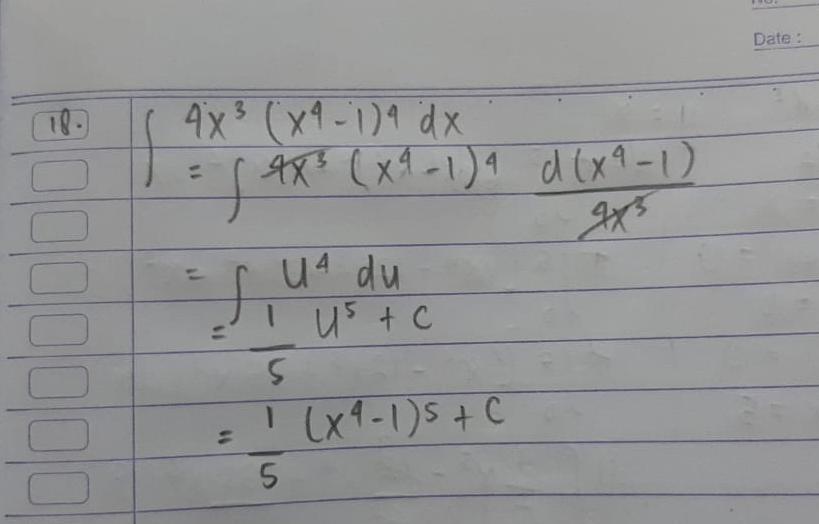 Date :
18. ∫ 4x³ (x⁴ - 1)⁴ dx
= ∫ 4x³ (x⁴ - 1)⁴ d(x⁴ - 1) / 4x³
= ∫ u⁴ du
= 1/5 u⁵ + c
= 1/5 (x⁴ - 1)⁵ + c